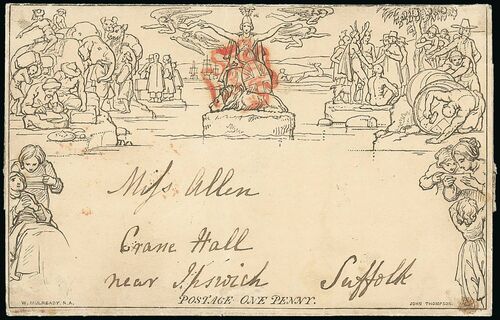 Miſs Allen
Crane Hall
near Ipswich Suffolk
POSTAGE ONE PENNY.
W. MULREADY, R.A. JOHN THOMPSON.